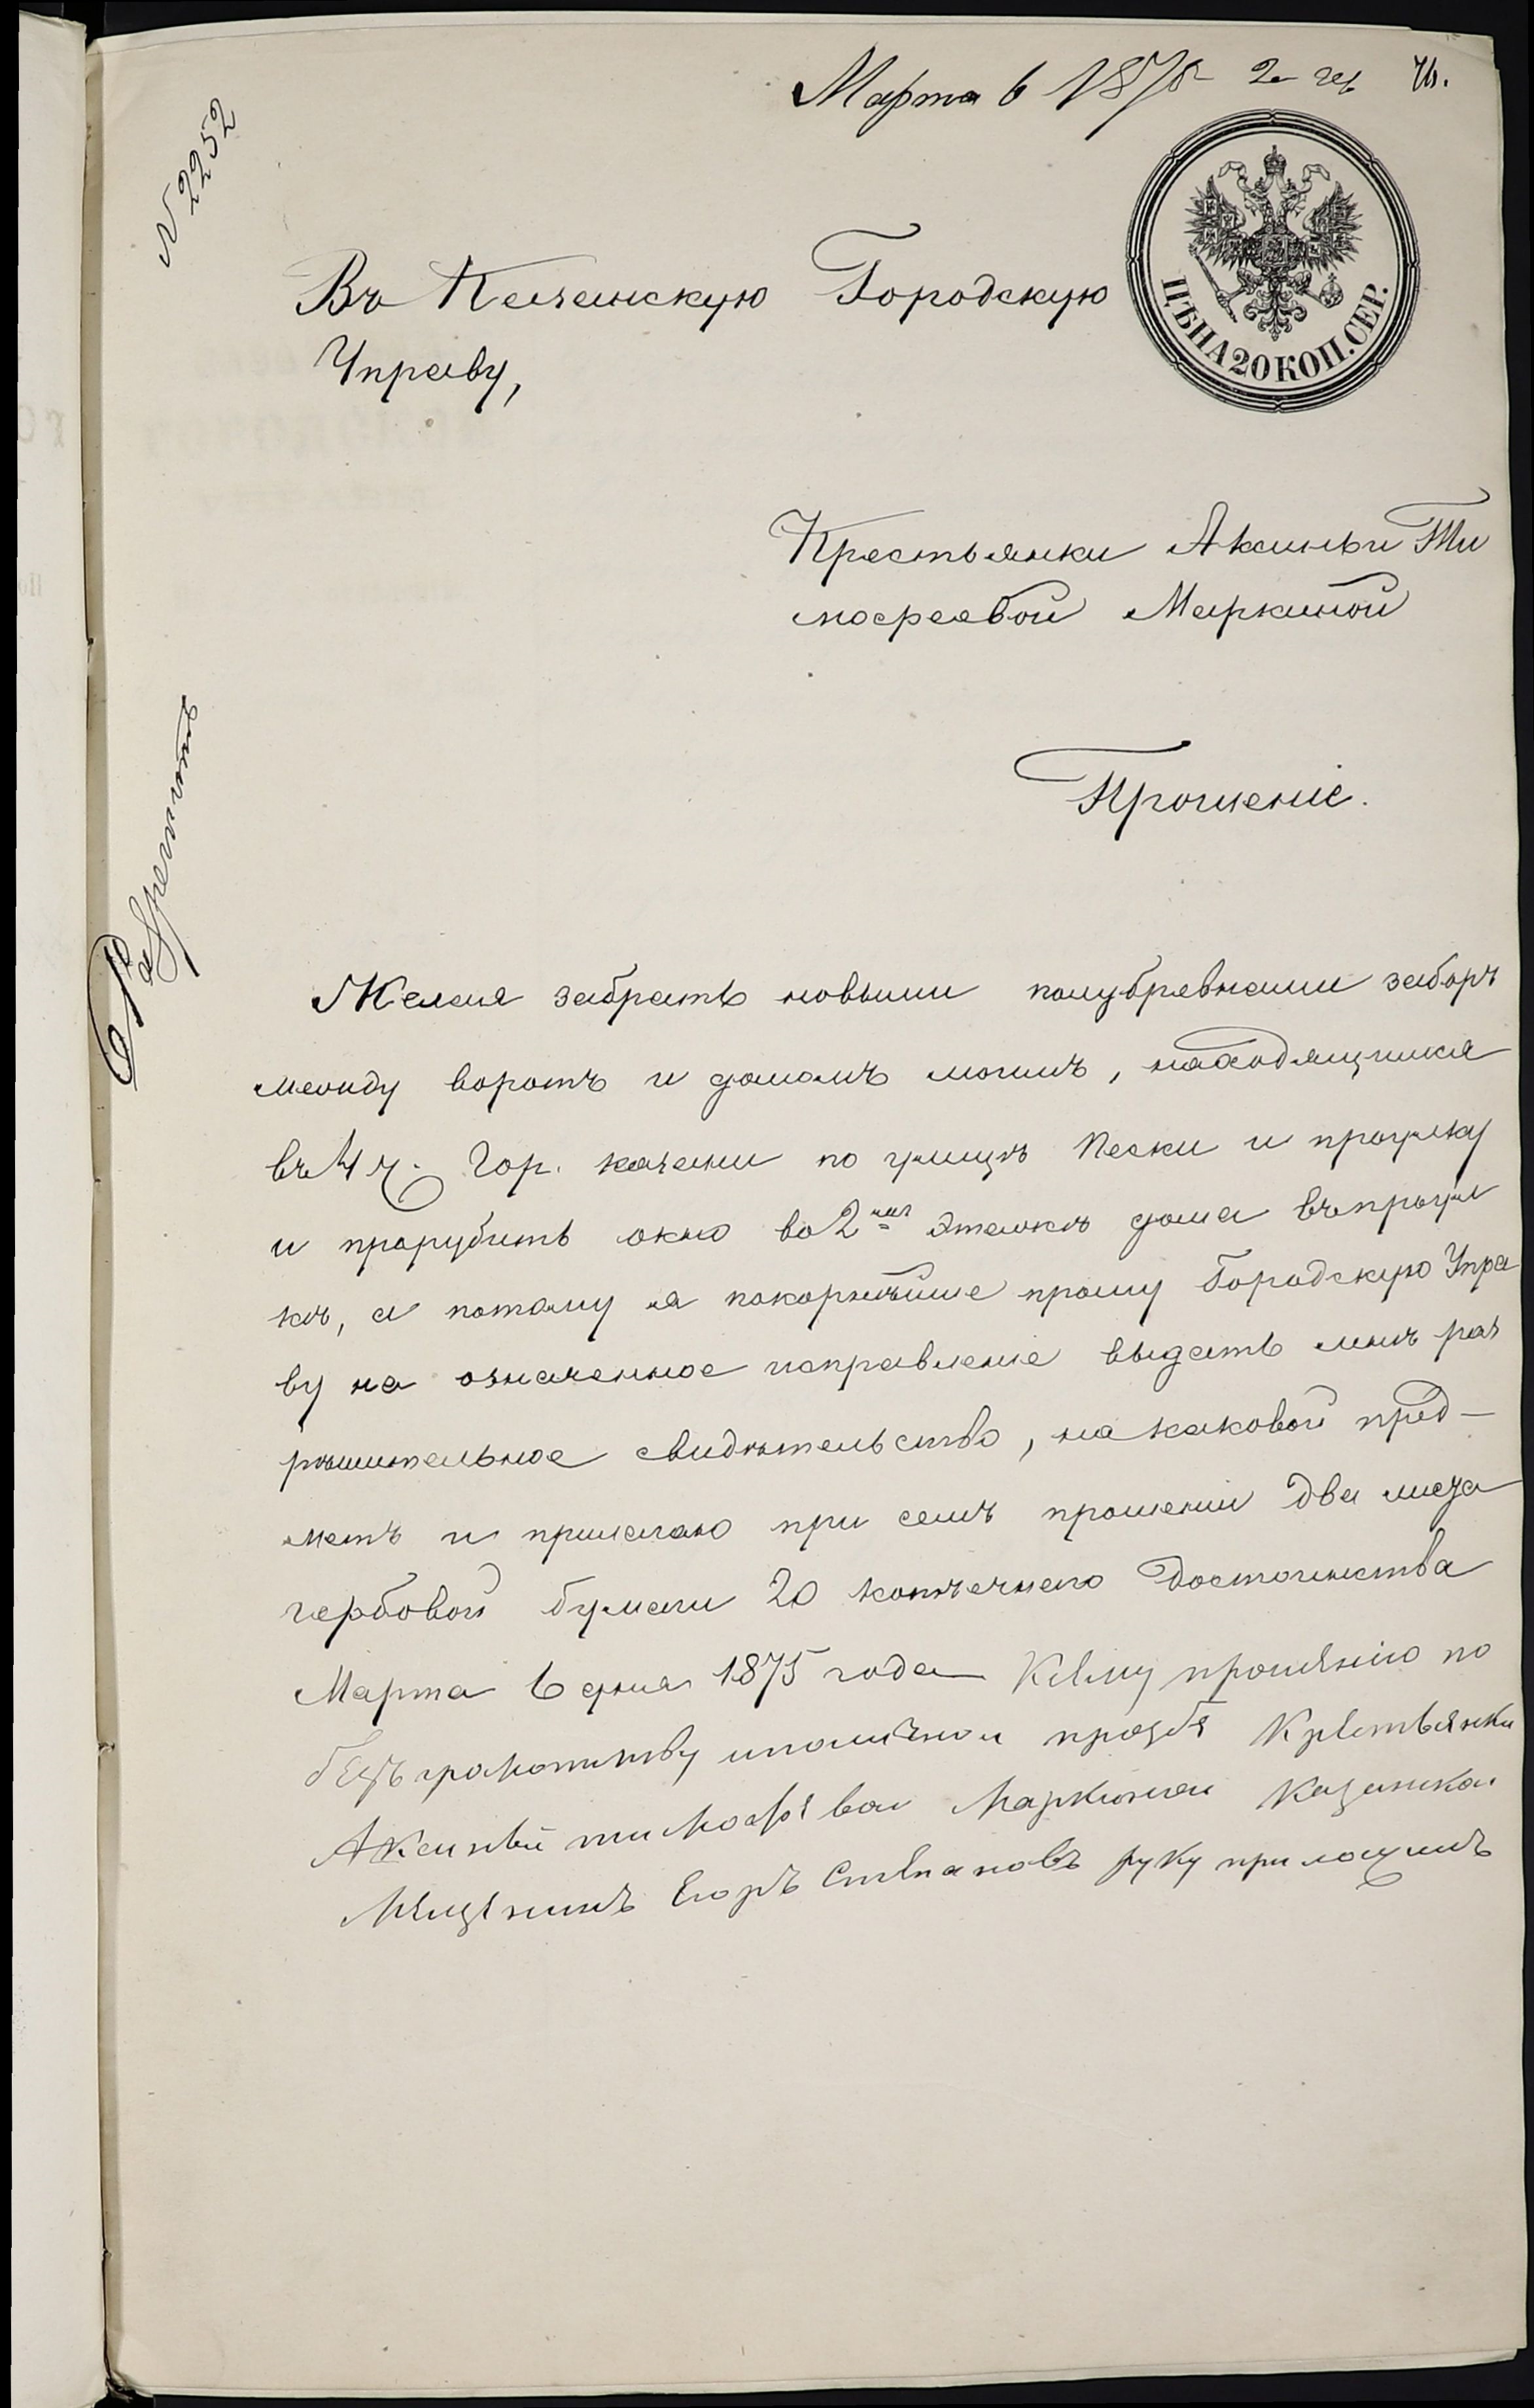 Марта 6 1875 2 ч 76.
N 2252
ЦѢНА 20 КОП. СЕР.
Въ Казанскую Городскую
Управу,
Крестьянки Аксиньи Ти
мофеевой Маркиной
Прошеніе.
Разрешить
Желая забрать новыми полубревнами заборъ
между воротъ и домомъ моимъ, находящимся
въ 4 ч. Гор. Казани по улицѣ Пески и проулку
и прорубить окно во 2мъ этажѣ дома въ проул
кѣ, а потому я покорнѣйше прошу Городскую Упра
ву на означенное исправленіе выдать мнѣ раз
рѣшительное свидѣтельство, на каковой пред-
метъ и прилагаю при семъ прошеніи два листа
гербовой бумаги 20 копѣечнаго достоинства
Марта 6 дня 1875 года К сему прошению по
безграмотству и по личной прозбѣ Крѣстьянки
Аксиньи тимофѣвои Маркинои Казанскои
Мѣщѣнинъ Егоръ Стѣпановъ руку приложилъ